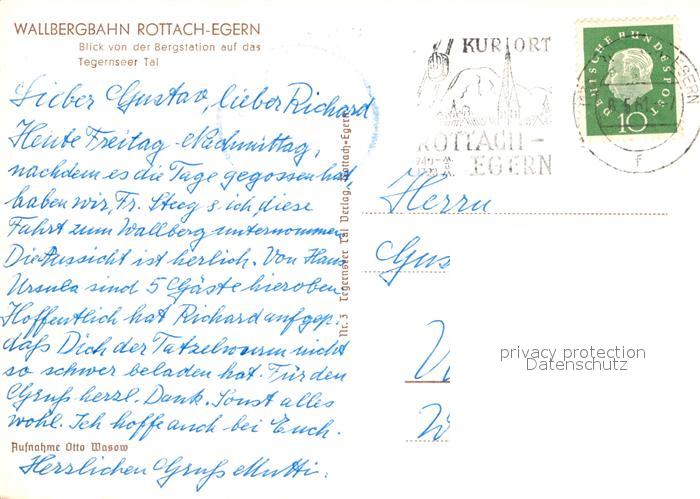 WALLBERGBAHN ROTTACH-EGERN
Blick von der Bergstation auf das
Tegernseer Tal
Lieber Gustav, lieber Richard
Heute Freitag-Nachmittag,
nachdem es die Tage gegossen hat,
haben wir, Fr. Steeg & ich, diese
Fahrt zum Wallberg unternommen.
Die Aussicht ist herlich. Von Haus
Ursula sind 5 Gäste hieroben.
Hoffentlich hat Richard aufgep.
daß Dich der Tatzelwurm nicht
so schwer beladen hat. Für den
Gruß herzl. Dank. Sonst alles
wohl. Ich hoffe auch bei Euch.
Aufnahme Otto Wasow
Herzlichen Gruß Mutti.
Nr. 3 Tegernseer Tal Verlag, Rottach-Egern
KURORT
ROTTACH-
EGERN
DEUTSCHE BUNDESPOST
10
EGERN
f
Herrn
Gus
privacy protection
Datenschutz